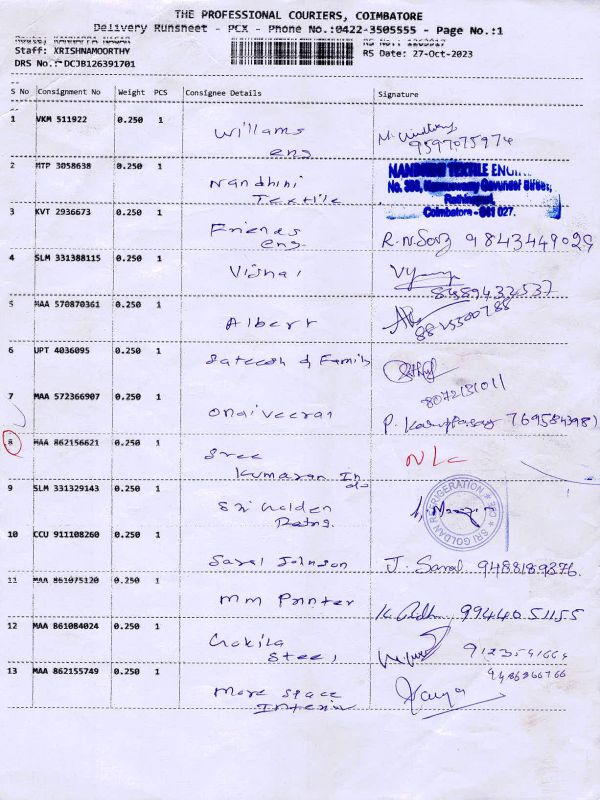 THE PROFESSIONAL COURIERS, COIMBATORE
Delivery Runsheet - PCX - Phone No.:0422-3505555 - Page No.:1
Route: KANNAPPA NAGAR RS No.: 1263917
Staff: KRISHNAMOORTHY RS Date: 27-Oct-2023
DRS No.: DCJB126391701
S No Consignment No Weight PCS Consignee Details Signature
1 VKM 511922 0.250 1 Williams
eng 9597075974
2 MTP 3058638 0.250 1 Nandhini
Textile
TEXTILE
Coimbatore - 641 027.
3 KVT 2936673 0.250 1 Friends
eng 9843449029
4 SLM 331388115 0.250 1 Vishal
8489432537
5 MAA 570870361 0.250 1 Albert
6 UPT 4036095 0.250 1 Sateesh & Family
7 MAA 572366907 0.250 1 Onaiveeran P. 7695843981
8 MAA 862156621 0.250 1 Sree
Kumaran
9 SLM 331329143 0.250 1 Sri Golden
SRI GOLDAN REFRIGERATION
CBE
10 CCU 911108260 0.250 1 Saral Johnson J. Saral 9488189376.
11 MAA 861075120 0.250 1 MM Printer 9944051155
12 MAA 861084024 0.250 1 Kokila
Steel
13 MAA 862155749 0.250 1 More Space
Interior